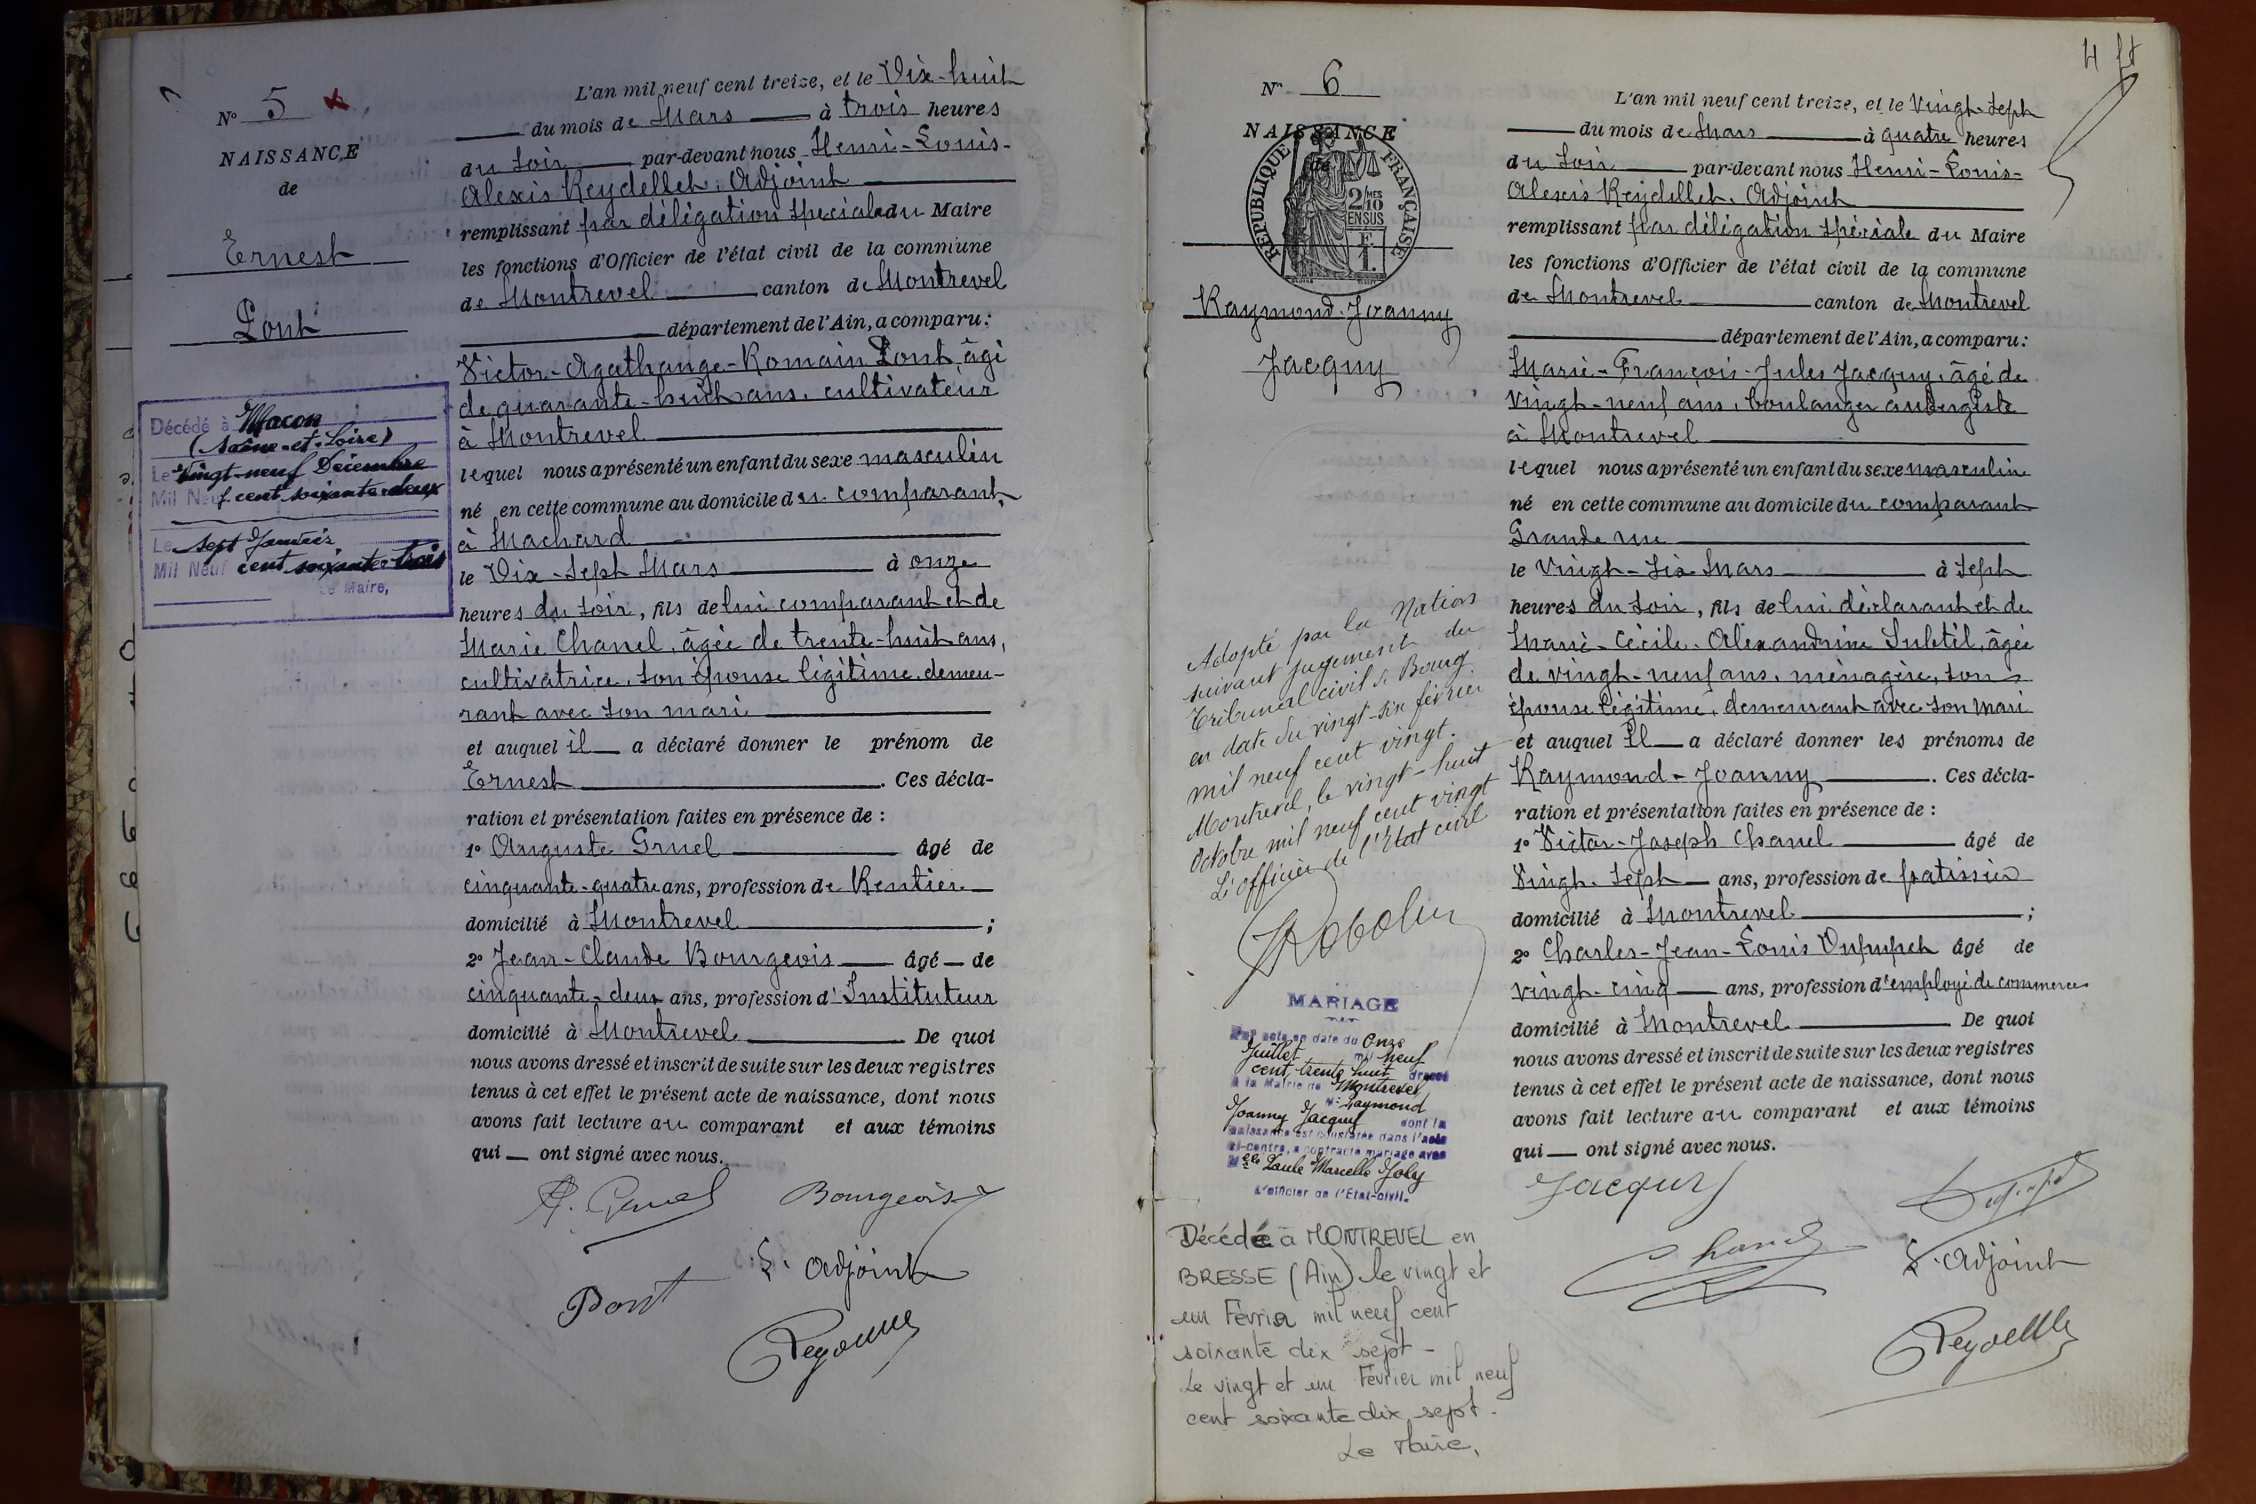 N° 5
NAISSANCE
de
Ernest
Pont
Décédé à Macon
(Saône-et-Loire)
Le Vingt-neuf Décembre
Mil Neuf cent soixante-deux
Le sept Janvier
Mil Neuf cent soixante-trois
Le Maire,
L'an mil neuf cent treize, et le Dix-huit
du mois de Mars à trois heures
du soir par-devant nous Henri-Louis-
Alexis Reydellet, Adjoint
remplissant par déligation speciale du Maire
les fonctions d'Officier de l'état civil de la commune
de Montrevel canton de Montrevel
département de l'Ain, a comparu:
Victor-Agathange-Romain Pont, âgé
de quarante-huit ans, cultivateur
à Montrevel
lequel nous a présenté un enfant du sexe masculin
né en cette commune au domicile du comparant,
à Machard
le Dix-sept Mars à onze
heures du soir, fils de lui comparant et de
Marie Chanel, âgée de trente-huit ans,
cultivatrice, son épouse légitime, demeu-
rant avec son mari
et auquel il a déclaré donner le prénom de
Ernest . Ces décla-
ration et présentation faites en présence de :
1° Auguste Gruel âgé de
cinquante-quatre ans, profession de Rentier
domicilié à Montrevel ;
2° Jean-Claude Bourgeois âgé de
cinquante-deux ans, profession d'Instituteur
domicilié à Montrevel De quoi
nous avons dressé et inscrit de suite sur les deux registres
tenus à cet effet le présent acte de naissance, dont nous
avons fait lecture au comparant et aux témoins
qui ont signé avec nous.
A. Gruel Bourgeois
L'Adjoint
Pont
Reydellet
4
N° 6
NAISSANCE
de
RÉPUBLIQUE FRANÇAISE
2/10 MES
EN SUS
F.
1.
Raymond-Joanny
Jacquy
Adopté par la Nation
suivant jugement du
Tribunal civil de Bourg
en date du vingt-six février
mil neuf cent vingt.
Montrevel, le vingt-huit
Octobre mil neuf cent vingt
L'officier de l'Etat civil
MARIAGE
Par acte en date du Onze
Juillet mil neuf
cent trente huit dressé
à la Mairie de Montrevel
Mr Raymond
Joanny Jacquy dont la
naissance est constatée dans l'acte
ci-contre, a contracté mariage avec
Melle Paule Marcelle Joly
L'officier de l'Etat-civil.
Décédé à MONTREVEL en
BRESSE (Ain) le vingt et
un Février mil neuf cent
soixante dix sept -
Le vingt et un Février mil neuf
cent soixante dix sept.
Le Maire,
L'an mil neuf cent treize, et le Vingt-sept
du mois de Mars à quatre heures
du soir par-devant nous Henri-Louis-
Alexis Reydellet, Adjoint
remplissant par déligation spéciale du Maire
les fonctions d'Officier de l'état civil de la commune
de Montrevel canton de Montrevel
département de l'Ain, a comparu:
Marie-François-Jules Jacquy, âgé de
Vingt-neuf ans, boulanger aubergiste
à Montrevel
lequel nous a présenté un enfant du sexe masculin
né en cette commune au domicile du comparant
Grande rue
le Vingt-six Mars à sept
heures du soir, fils de lui déclarant et de
Marie-Cécile-Alexandrine Subtil, âgée
de vingt-neuf ans, ménagère, son
épouse légitime, demeurant avec son mari
et auquel il a déclaré donner les prénoms de
Raymond-Joanny . Ces décla-
ration et présentation faites en présence de :
1° Victor-Joseph Chanel âgé de
Vingt-sept ans, profession de patissier
domicilié à Montrevel ;
2° Charles-Jean-Louis Dupupet âgé de
vingt-cinq ans, profession d'employé de commerce
domicilié à Montrevel De quoi
nous avons dressé et inscrit de suite sur les deux registres
tenus à cet effet le présent acte de naissance, dont nous
avons fait lecture au comparant et aux témoins
qui ont signé avec nous.
Jacquy
Chanel
L'Adjoint
Reydellet